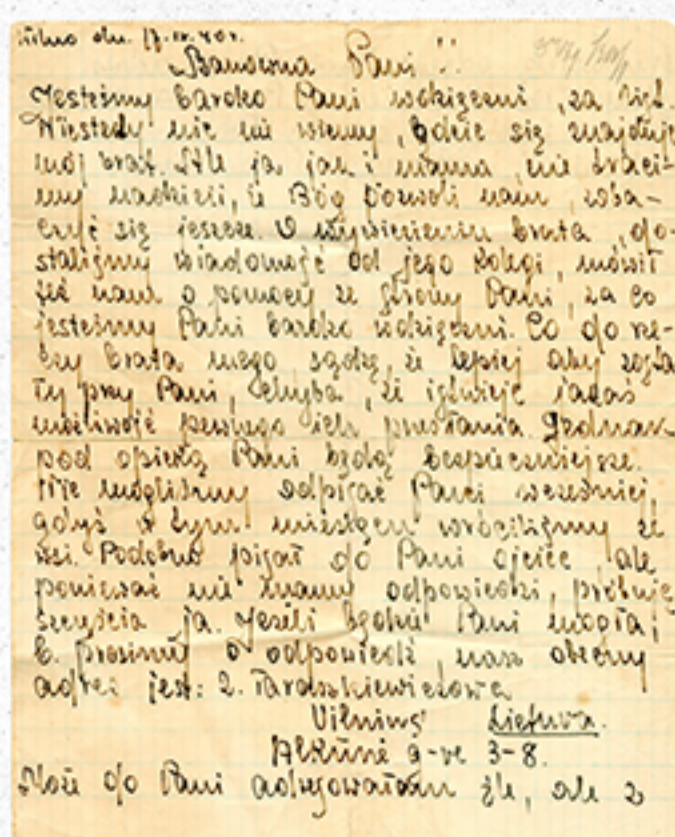 Wilno dn. 17.IX.40r.
Szanowna Pani!!
Jesteśmy bardzo Pani wdzięczni, za list.
Niestety nic nie wiemy, gdzie się znajduje
mój brat. Ale ja, jak i mama, nie traci-
my nadzieji, że Bóg pozwoli nam, zoba-
czyć się jeszcze. O wywiezieniu brata, do-
staliśmy wiadomość od jego kolegi, mówił
też nam o pomocy ze strony Pani, za co
jesteśmy Pani bardzo wdzięczni. Co do rze-
czy brata mego, sądzę, że lepiej aby zosta
ły przy Pani, chyba, że istnieje jakaś
możliwość pewnego ich przesłania. Jednak
pod opieką Pani będą bezpieczniejsze.
Nie mogliśmy odpisać Pani wcześniej,
gdyż w tym miesiącu wróciliśmy ze
wsi. Podobno pisał do Pani ojciec, ale
ponieważ nie znamy odpowiedzi, próbuję
szczęścia ja. Jeżeli będzie Pani mogła,
b. prosimy o odpowiedź, nasz obecny
adres jest: Z. Taraszkiewiczowa
Vilnius Lietuva.
g-ve 3-8.
Może do Pani adresowałam źle, ale z